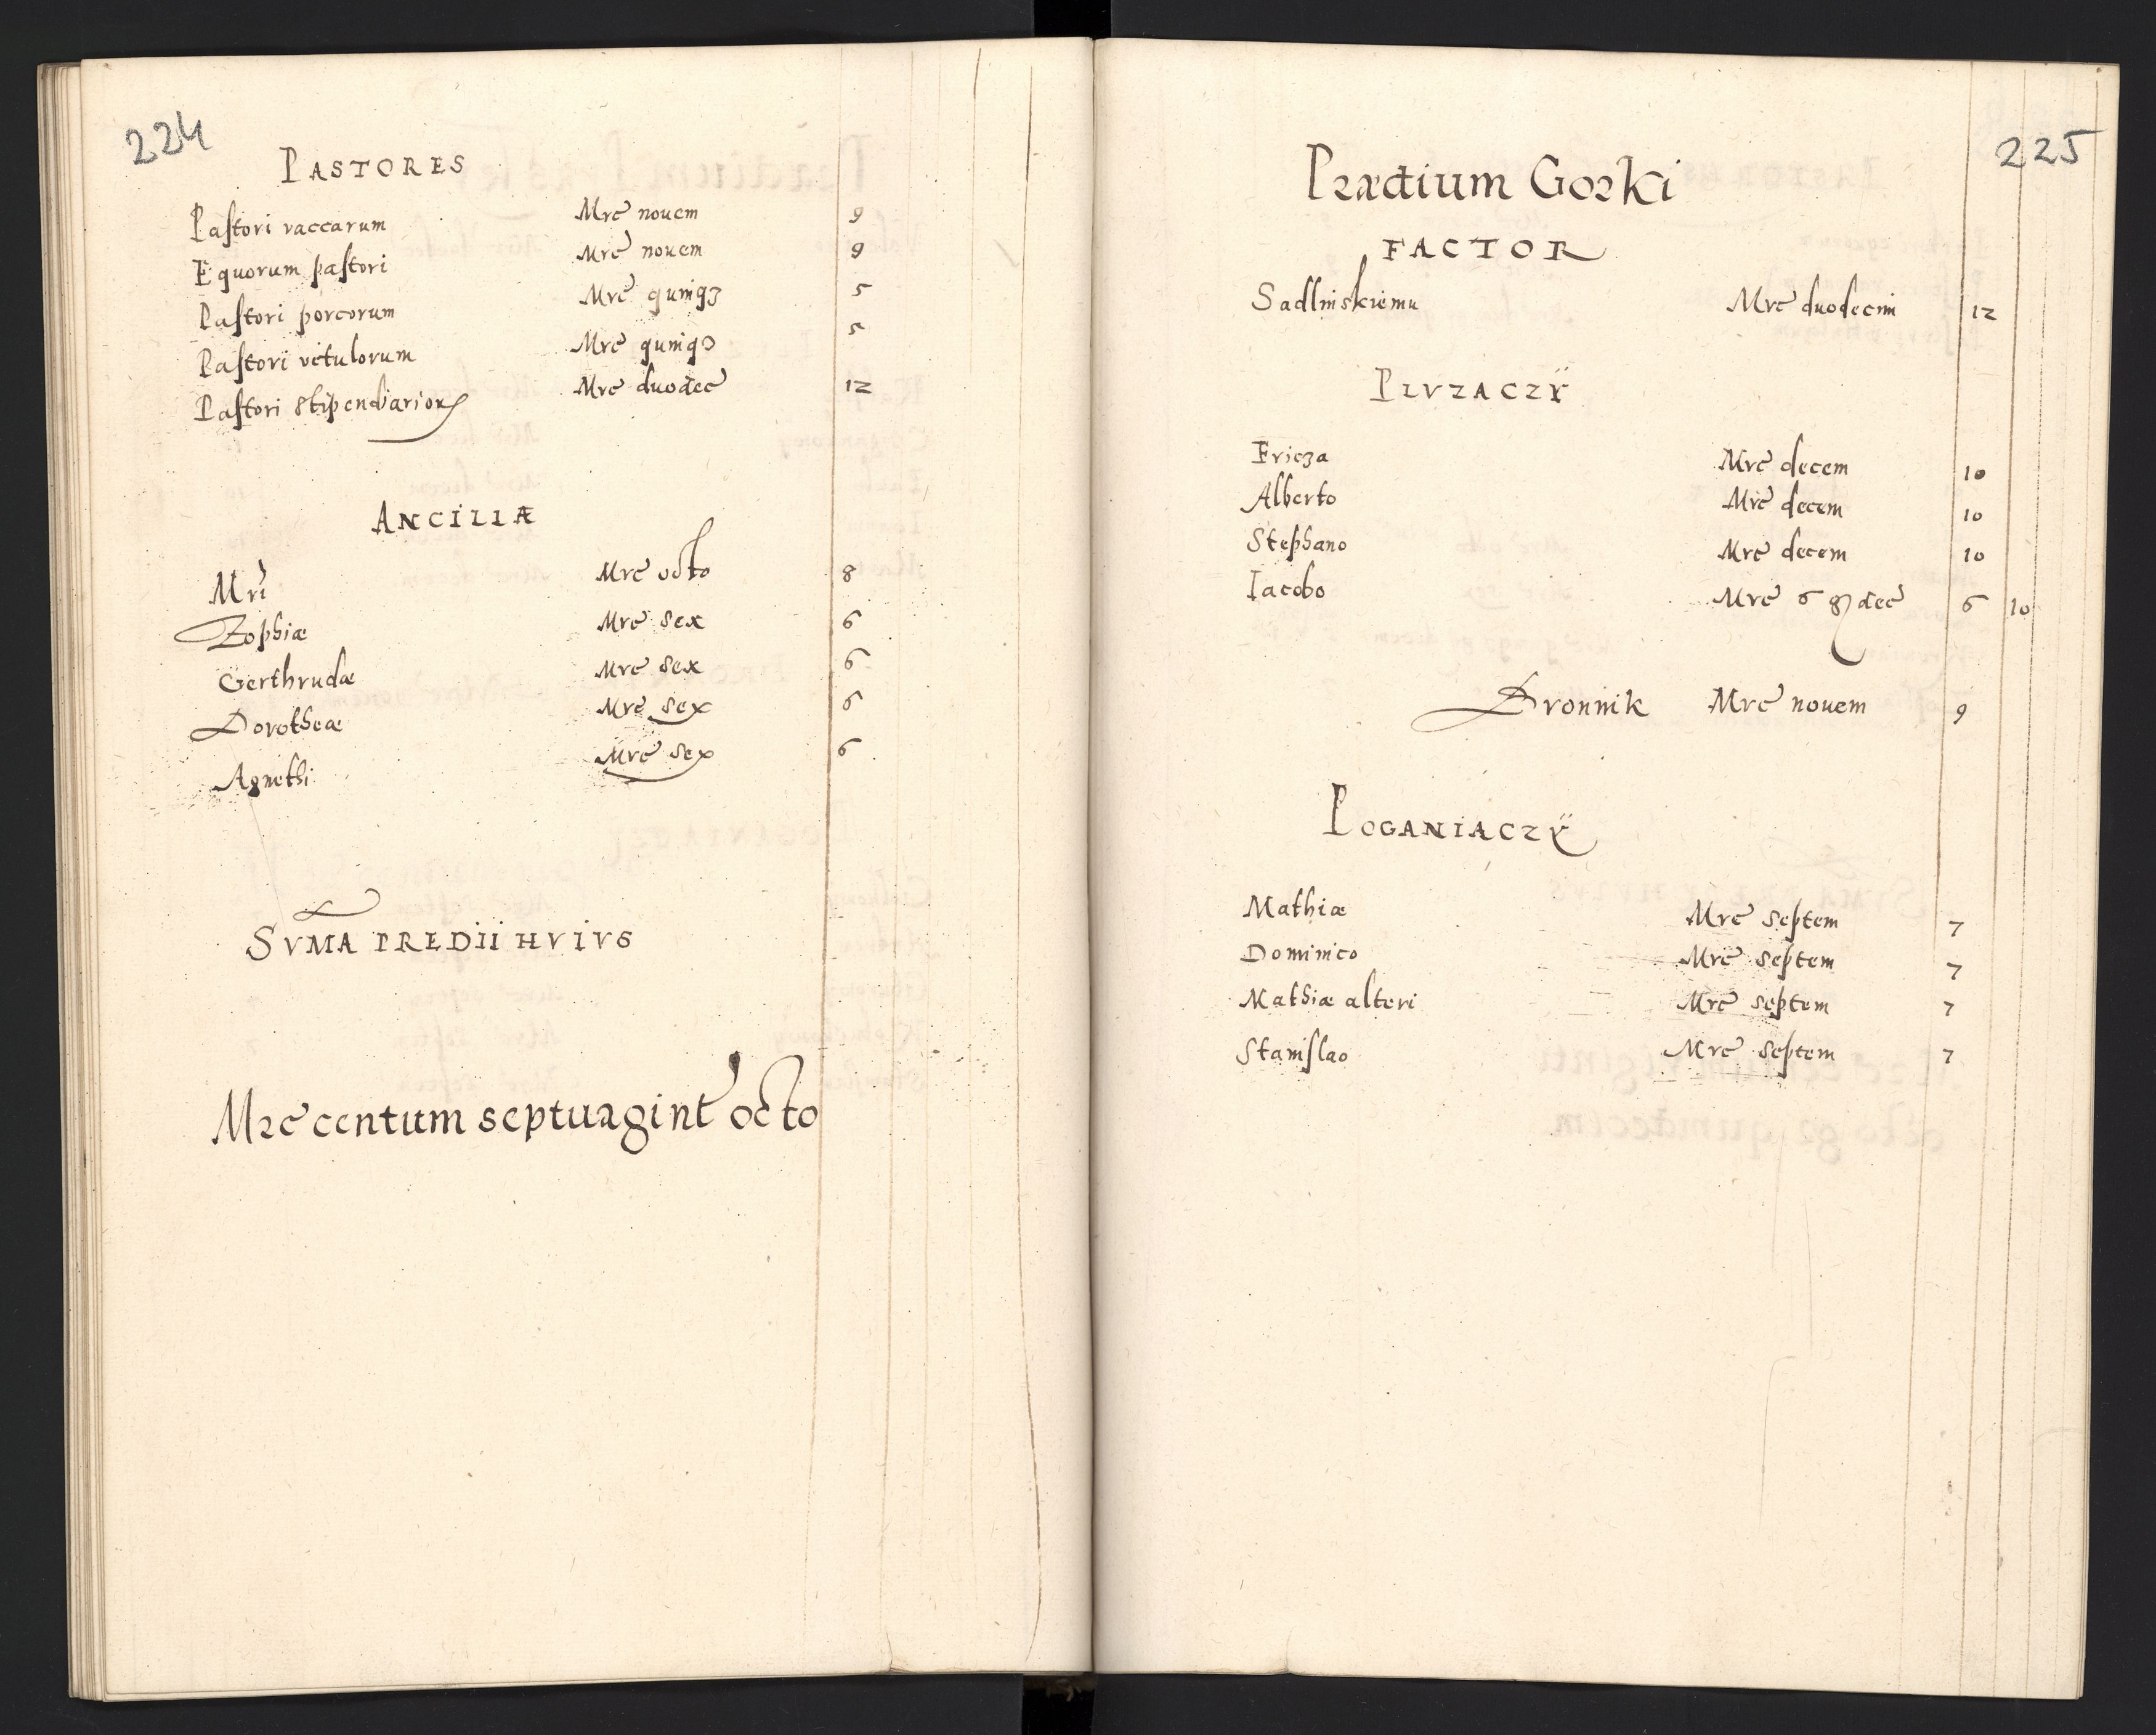 224
PASTORES
Pastori vaccarum Mrc̄ nouem 9
Equorum pastori Mrc̄ nouem 9
Pastori porcorum Mrc̄ quinqꝫ 5
Pastori vitulorum Mrc̄ quinqꝫ 5
Pastori stipendiarioꝝ Mrc̄ duodec̄ 12
ANCILLÆ
Mri Mrc̄ octo 8
Zophiæ Mrc̄ sex 6
Gerthrudæ Mrc̄ sex 6
Dorotheæ Mrc̄ sex 6
Agnethi Mrc̄ sex 6
SVMA PREDII HVIVS
Mrc̄ centum septuagint̄ octo
225
Prædium Gorki
FACTOR
Sadlinskiemu Mrc̄ duodecim 12
PLVZACZŸ
Fricza Mrc̄ decem 10
Alberto Mrc̄ decem 10
Stephano Mrc̄ decem 10
Iacobo Mrc̄ 6 gͬ dec̄ 6 10
Dronnik Mrc̄ nouem 9
POGANIACZŸ
Mathiæ Mrc̄ septem 7
Dominico Mrc̄ septem 7
Mathiæ alteri Mrc̄ septem 7
Stanislao Mrc̄ septem 7